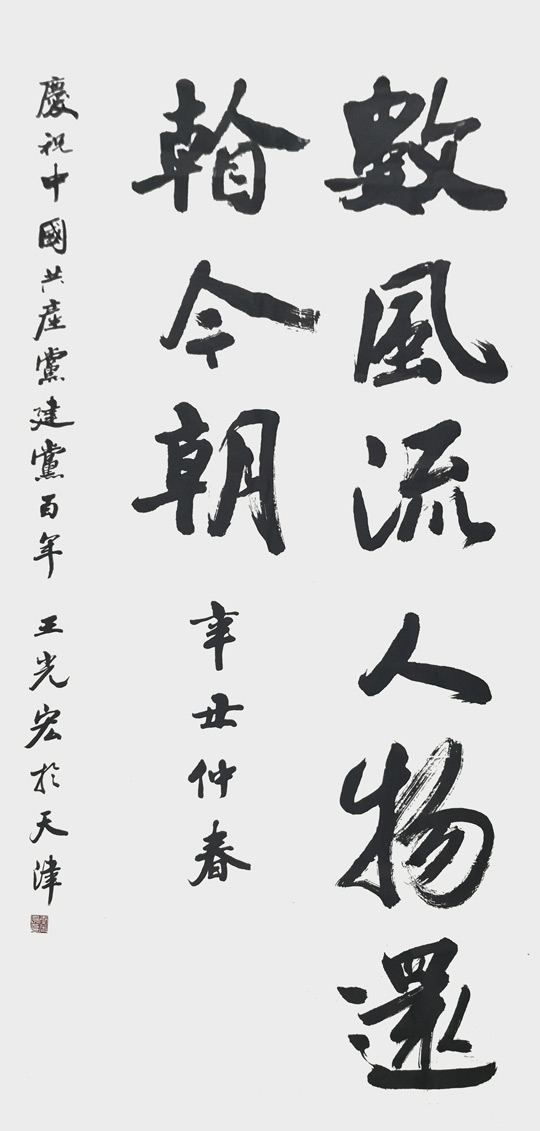 數風流人物還
䁍今朝 辛丑仲春
慶祝中國共產黨建黨百年 王光宏於天津